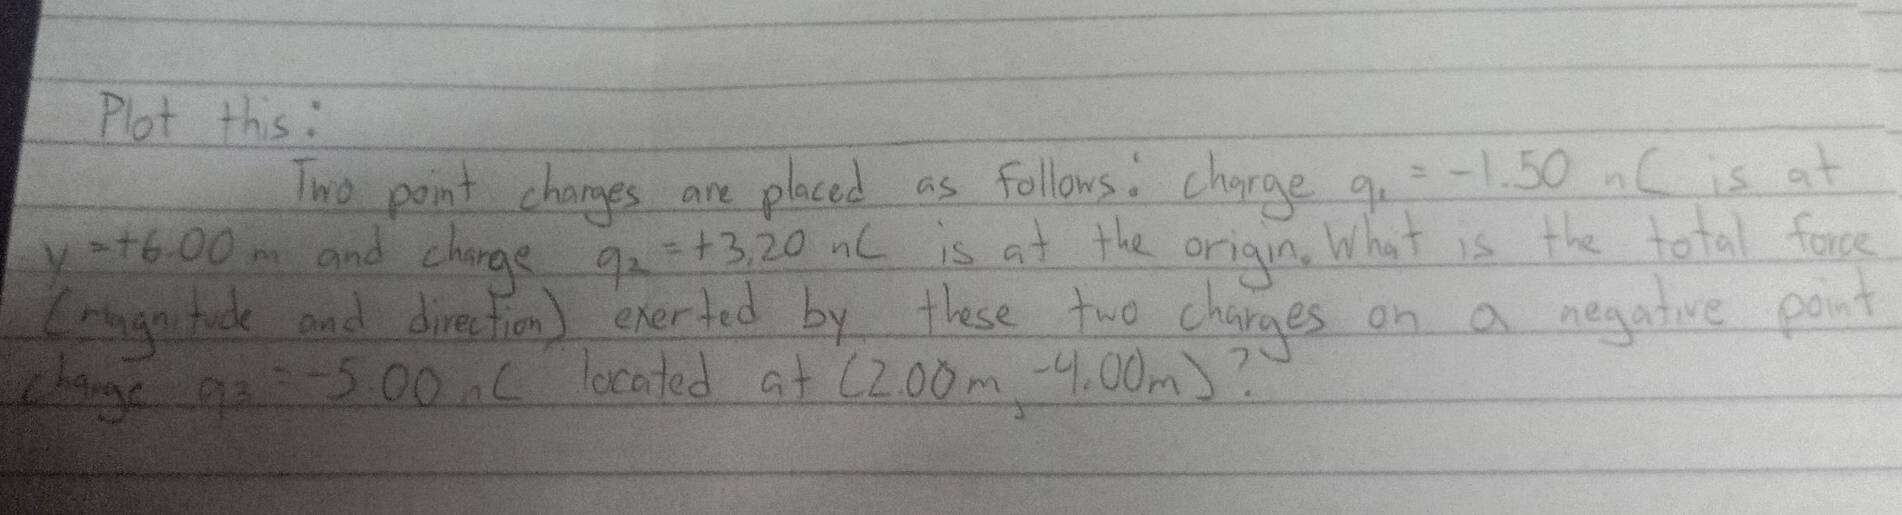 Plot this:
Two point charges are placed as follows: charge q₁ = -1.50 nC is at
y = +6.00 m and charge q₂ = +3.20 nC is at the origin. What is the total force
(magnitude and direction) exerted by these two charges on a negative point
charge q₃ = -5.00 nC located at (2.00m, -4.00m)?